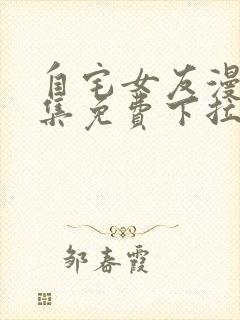 自宅女友漫
集免费下拉
邹春霞